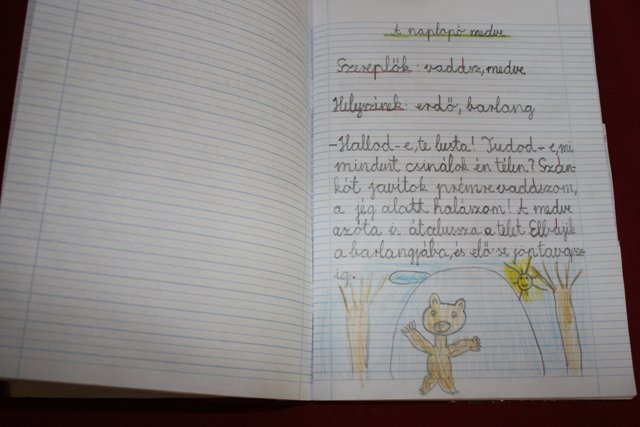 A naplopó medve
Szereplők: vaddsz, medve
Helyszinek: erdő, barlang
-Hallod-e, te lusta! Tudod-e, mi
mindent csinálok én télen? Szán-
kót javítok prémre vaddszom,
a jég alatt halászom! A medve
azóta is átalussza a telet Elbújik
a barlangjába, és elő se jön tavasz-
ig.